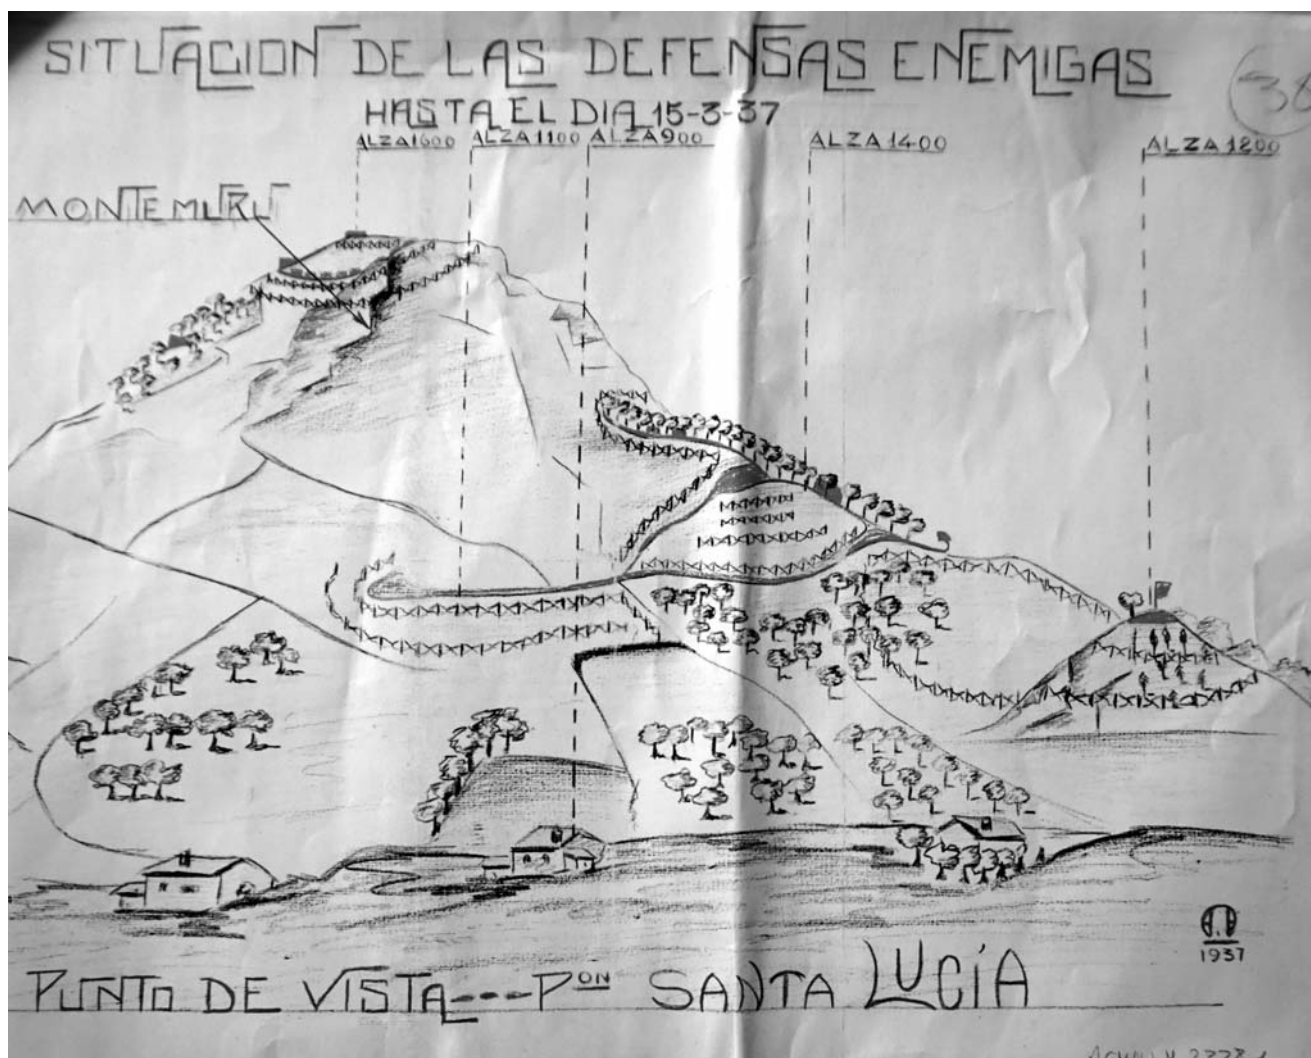 SITUACION DE LAS DEFENSAS ENEMIGAS
38
HASTA EL DIA 15-3-37
ALZA 1600 ALZA 1100 ALZA 900 ALZA 1400 ALZA 1200
MONTE MURU
1937
PUNTO DE VISTA----PON SANTA LUCÍA